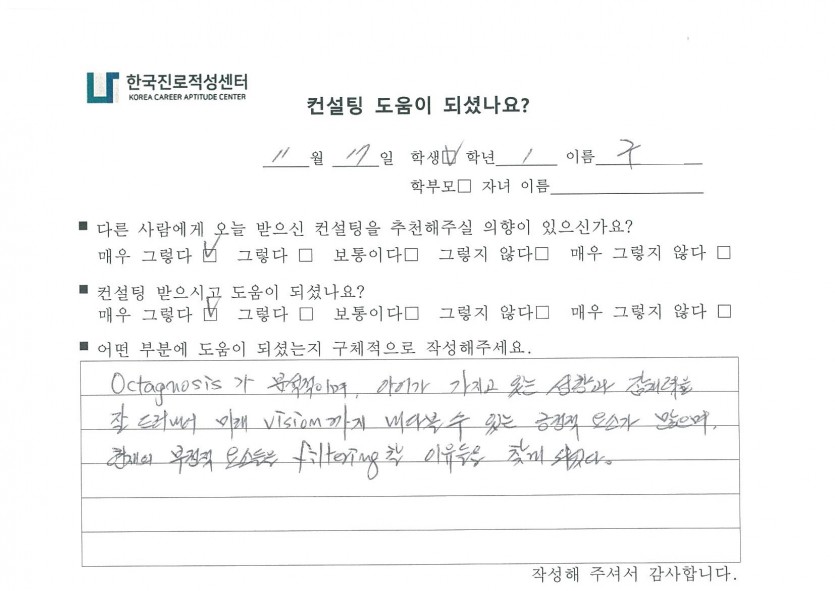 한국진로적성센터
KOREA CAREER APTITUDE CENTER
컨설팅 도움이 되셨나요?
11 월 17 일 학생☑ 학년 1 이름 구
학부모□ 자녀 이름
■ 다른 사람에게 오늘 받으신 컨설팅을 추천해주실 의향이 있으신가요?
매우 그렇다 ☑ 그렇다 □ 보통이다□ 그렇지 않다□ 매우 그렇지 않다 □
■ 컨설팅 받으시고 도움이 되셨나요?
매우 그렇다 ☑ 그렇다 □ 보통이다□ 그렇지 않다□ 매우 그렇지 않다 □
■ 어떤 부분에 도움이 되셨는지 구체적으로 작성해주세요.
Octagnosis가 분석적이며, 아이가 가지고 있는 성향과 잠재력을
잘 드러내어 미래 vision까지 내다볼 수 있는 긍정적 요소가 많으며,
현재의 부정적 요소들을 filtering할 이유들을 찾게 되었다.
작성해 주셔서 감사합니다.